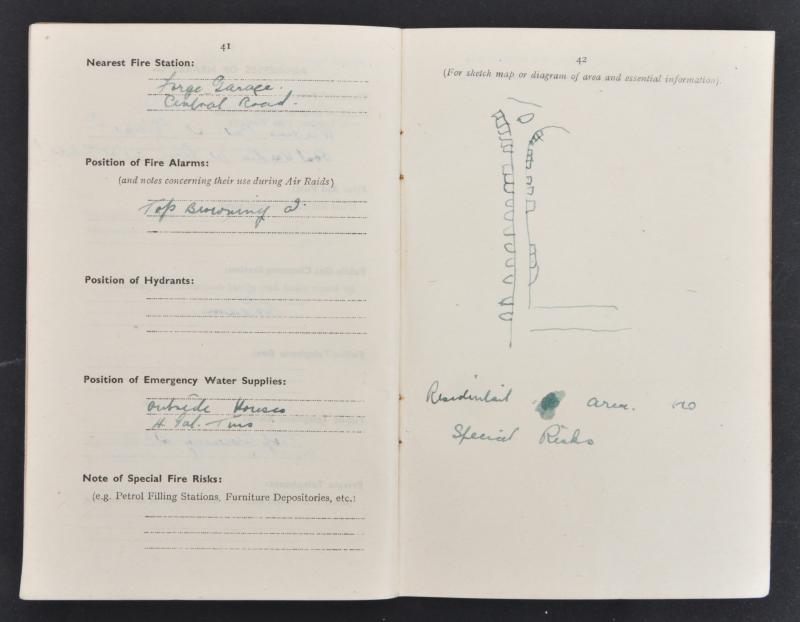 41
Nearest Fire Station:
Forge Garage.
Central Road.
Position of Fire Alarms:
(and notes concerning their use during Air Raids)
Top Browning
Position of Hydrants:
Position of Emergency Water Supplies:
outside Houses
Gal. Tins
Note of Special Fire Risks:
(e.g. Petrol Filling Stations, Furniture Depositories, etc.)
42
(For sketch map or diagram of area and essential information).
Residential area. no
Special Risks